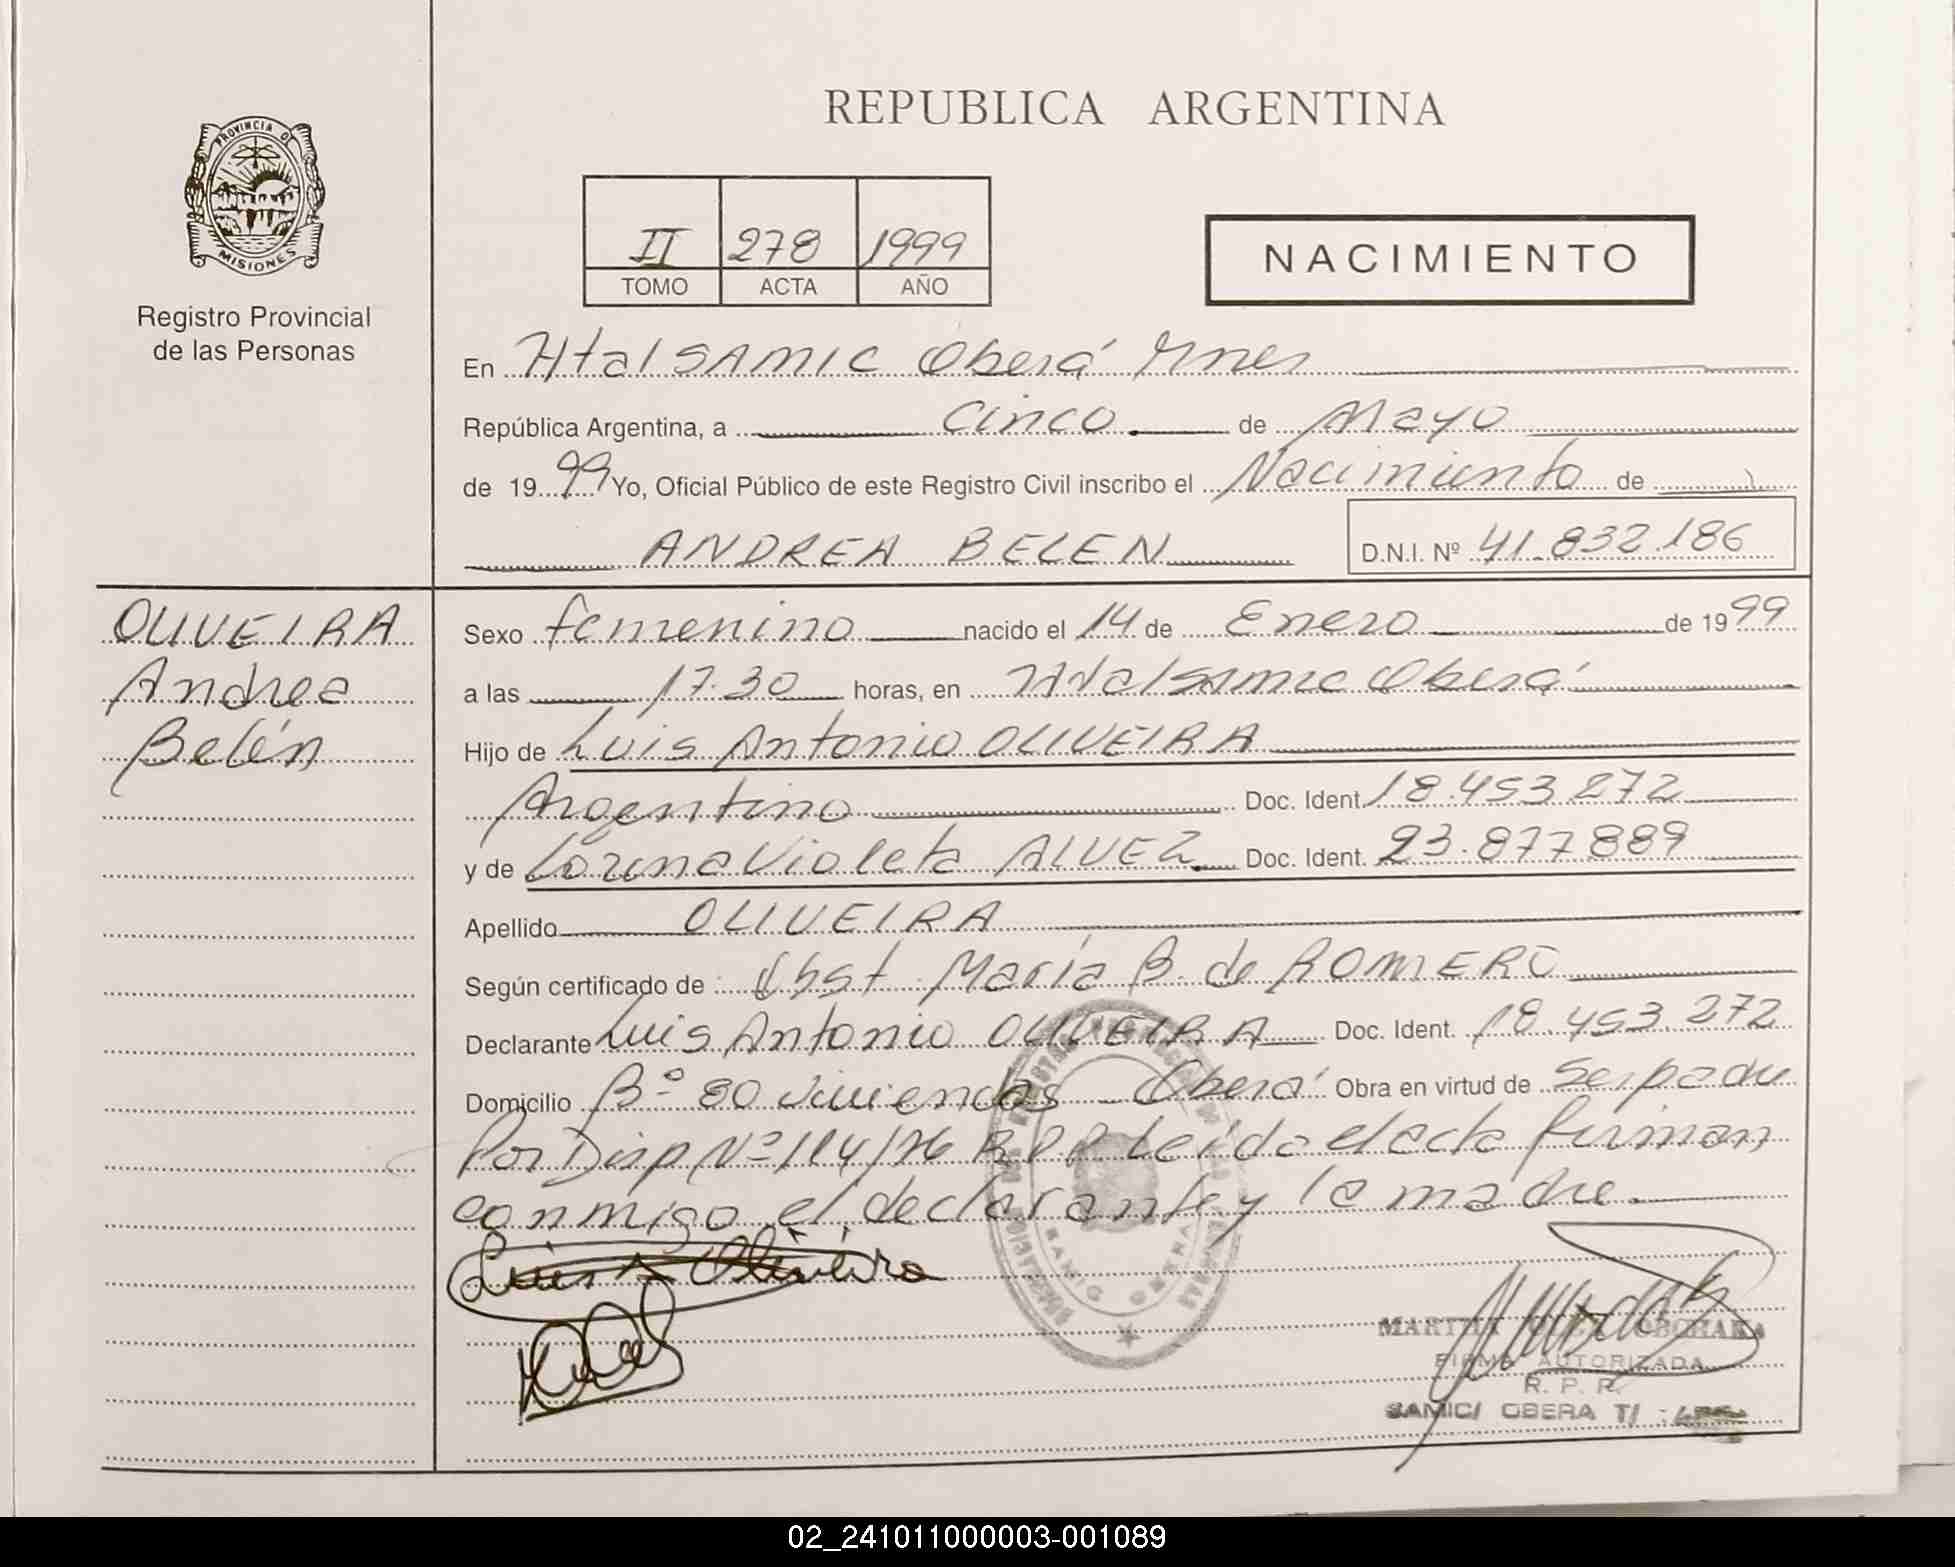 PROVINCIA DE
MISIONES
Registro Provincial
de las Personas
REPUBLICA ARGENTINA
II 278 1999
TOMO ACTA AÑO
NACIMIENTO
En Htal SAMIC Oberá Mnes
República Argentina, a cinco de Mayo
de 1999 Yo, Oficial Público de este Registro Civil inscribo el Nacimiento de
ANDREA BELEN D.N.I. Nº 41.832.186
OLIVEIRA
Andrea
Belén
Sexo femenino nacido el 14 de Enero de 1999
a las 17.30 horas, en Htal SAMIC Oberá
Hijo de Luis Antonio OLIVEIRA
Argentino Doc. Ident 18.453.272
y de Lorena Violeta ALVEZ Doc. Ident. 23.877.889
Apellido OLIVEIRA
Según certificado de Obst. María B. de ROMERO
Declarante Luis Antonio OLIVEIRA Doc. Ident. 18.453.272
Domicilio Bº 80 viviendas - Oberá Obra en virtud de Ser padre
Por Disp Nº 114/76 R.P.P. Leída el acta firman
conmigo el declarante y la madre.
Luis A Oliveira
MARTHA
FIRMA AUTORIZADA
R. P. P.
SAMIC/ OBERA T/
02_241011000003-001089